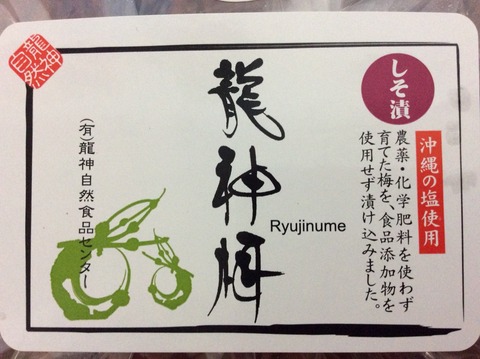 しそ漬
沖縄の塩使用
農薬・化学肥料を使わず
育てた梅を、食品添加物を
使用せず漬け込みました。
龍神梅
Ryujinume
龍神
自然
(有)龍神自然食品センター